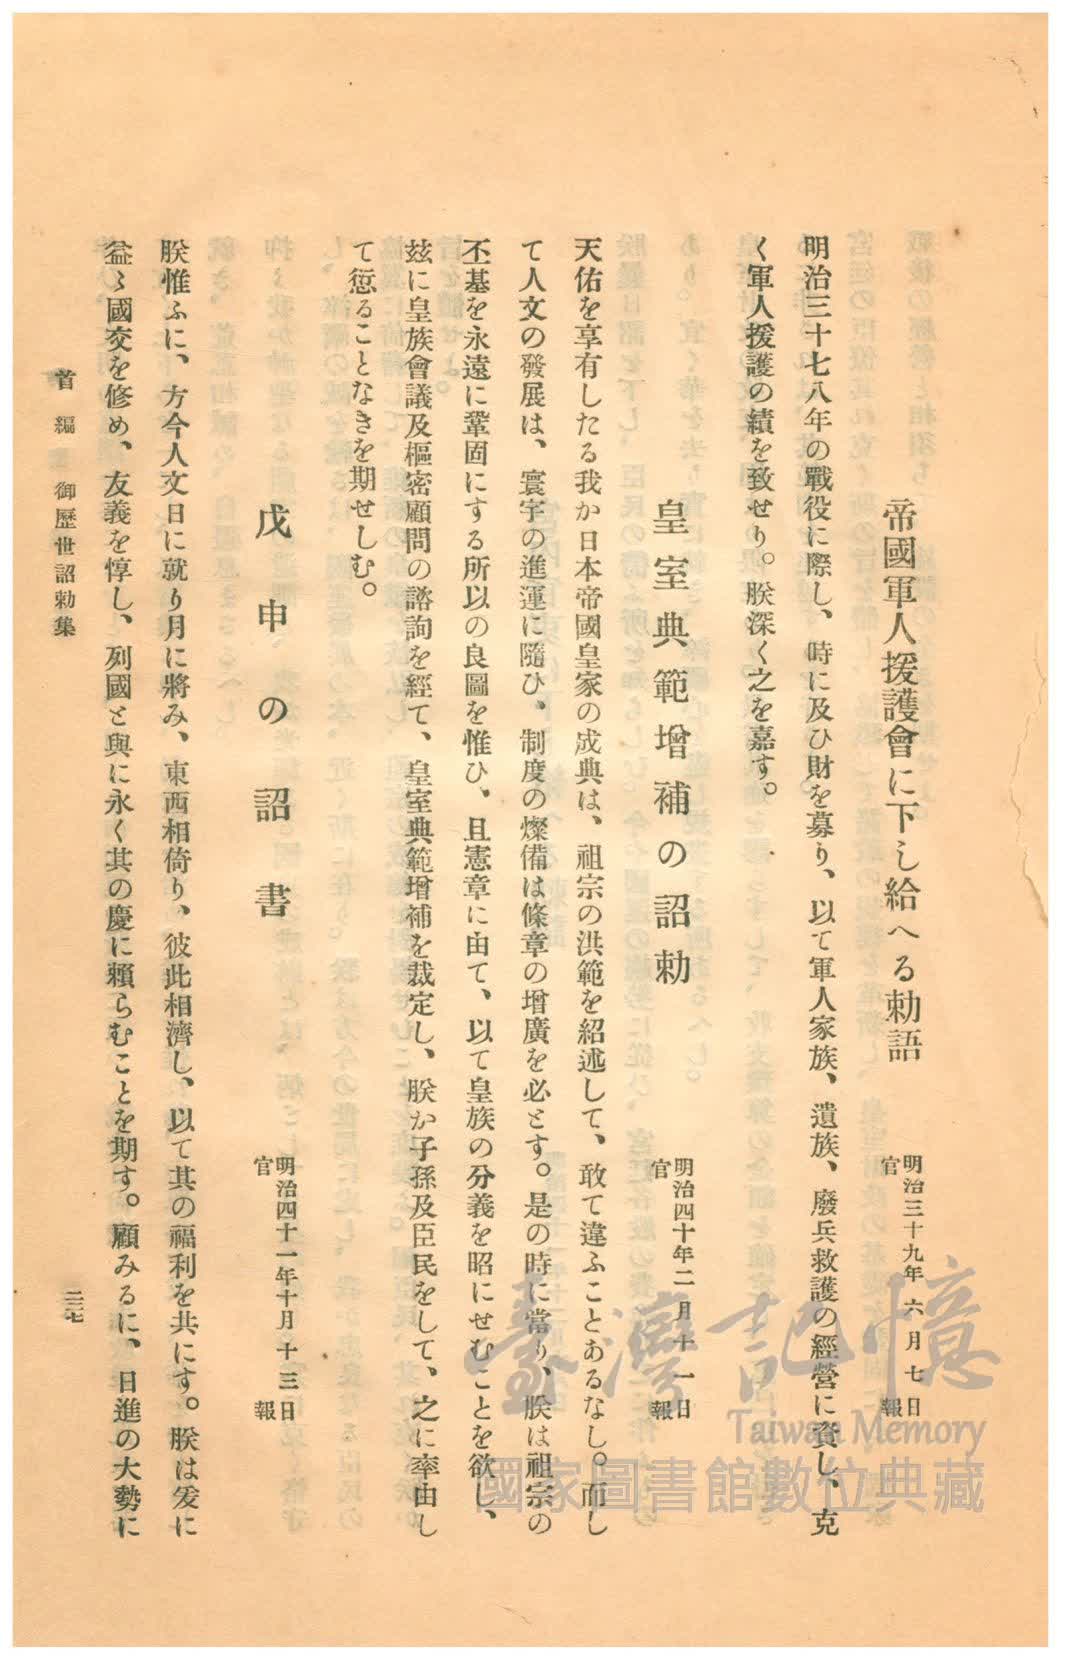 帝國軍人援護會に下し給へる勅語
明治三十九年六月七日
官報
明治三十七八年の戰役に際し、時に及ひ財を募り、以て軍人家族、遺族、廢兵救護の經營に資し、克
く軍人援護の績を致せり。朕深く之を嘉す。
皇室典範增補の詔勅
明治四十年二月十一日
官報
天佑を享有したる我か日本帝國皇家の成典は、祖宗の洪範を紹述して、敢て違ふことあるなし。而し
て人文の發展は、寰宇の進運に隨ひ、制度の燦備は條章の增廣を必とす。是の時に當り、朕は祖宗の
丕基を永遠に鞏固にする所以の良圖を惟ひ、且憲章に由て、以て皇族の分義を昭にせむことを欲し、
玆に皇族會議及樞密顧問の諮詢を經て、皇室典範增補を裁定し、朕か子孫及臣民をして、之に率由し
て愆ることなきを期せしむ。
戊申の詔書
明治四十一年十月十三日
官報
朕惟ふに、方今人文日に就り月に將み、東西相倚り、彼此相濟し、以て其の福利を共にす。朕は爰に
益〻國交を修め、友義を惇し、列國と與に永く其の慶に賴らむことを期す。顧みるに、日進の大勢に
首編 御歷世詔勅集
二三七
臺灣記憶
Taiwan Memory
國家圖書館數位典藏